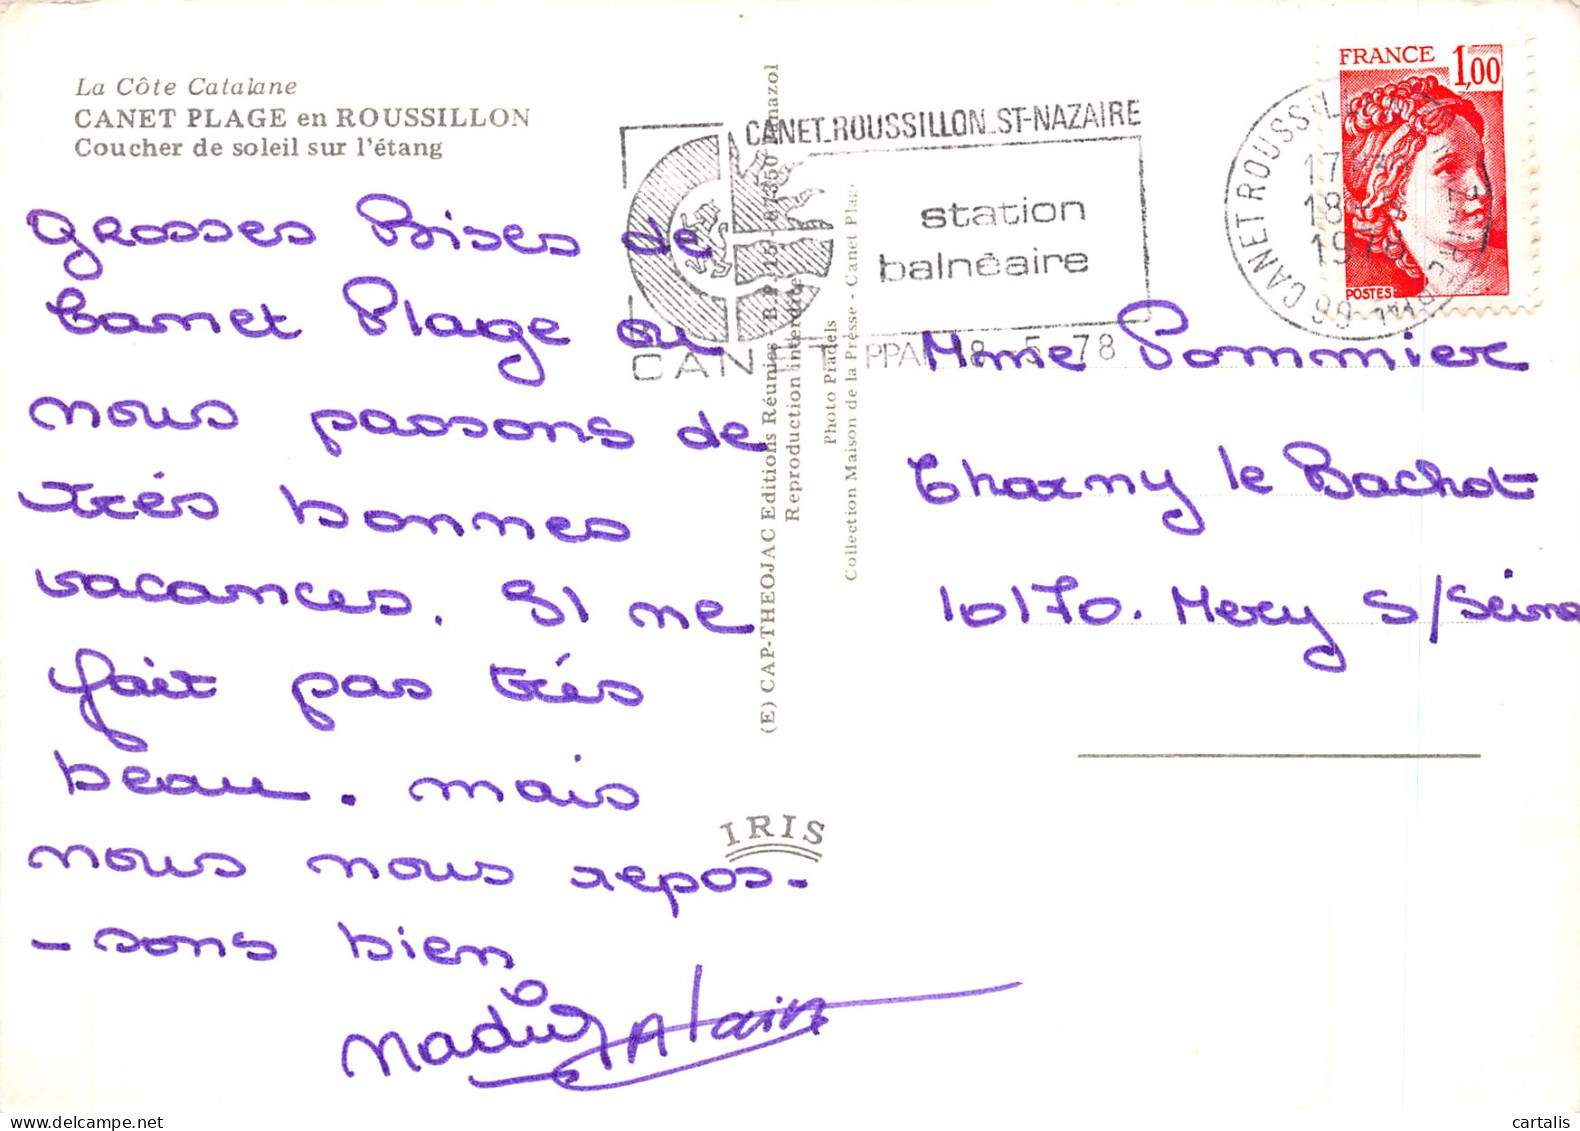 La Côte Catalane
CANET PLAGE en ROUSSILLON
Coucher de soleil sur l'étang
grosses Bises de
Canet Plage ou
nous passons de
très bonnes
vacances. Il ne
fait pas très
beau. mais
nous nous repos-
-sons bien
Alain
(E) CAP-THEOJAC Editions Réunies
Reproduction interdite
Photo Piadels
Collection Maison de la Presse - Canet Plage
IRIS
CANET_ROUSSILLON_ST-NAZAIRE
station
balnéaire
CANET
PPAL 18 5 78
66 CANET ROUSSILLON
17
18
1978
FRANCE 1,00
POSTES
Mme Pommier
Charny le Bachot
10170. Mery S/Seine
cartalis